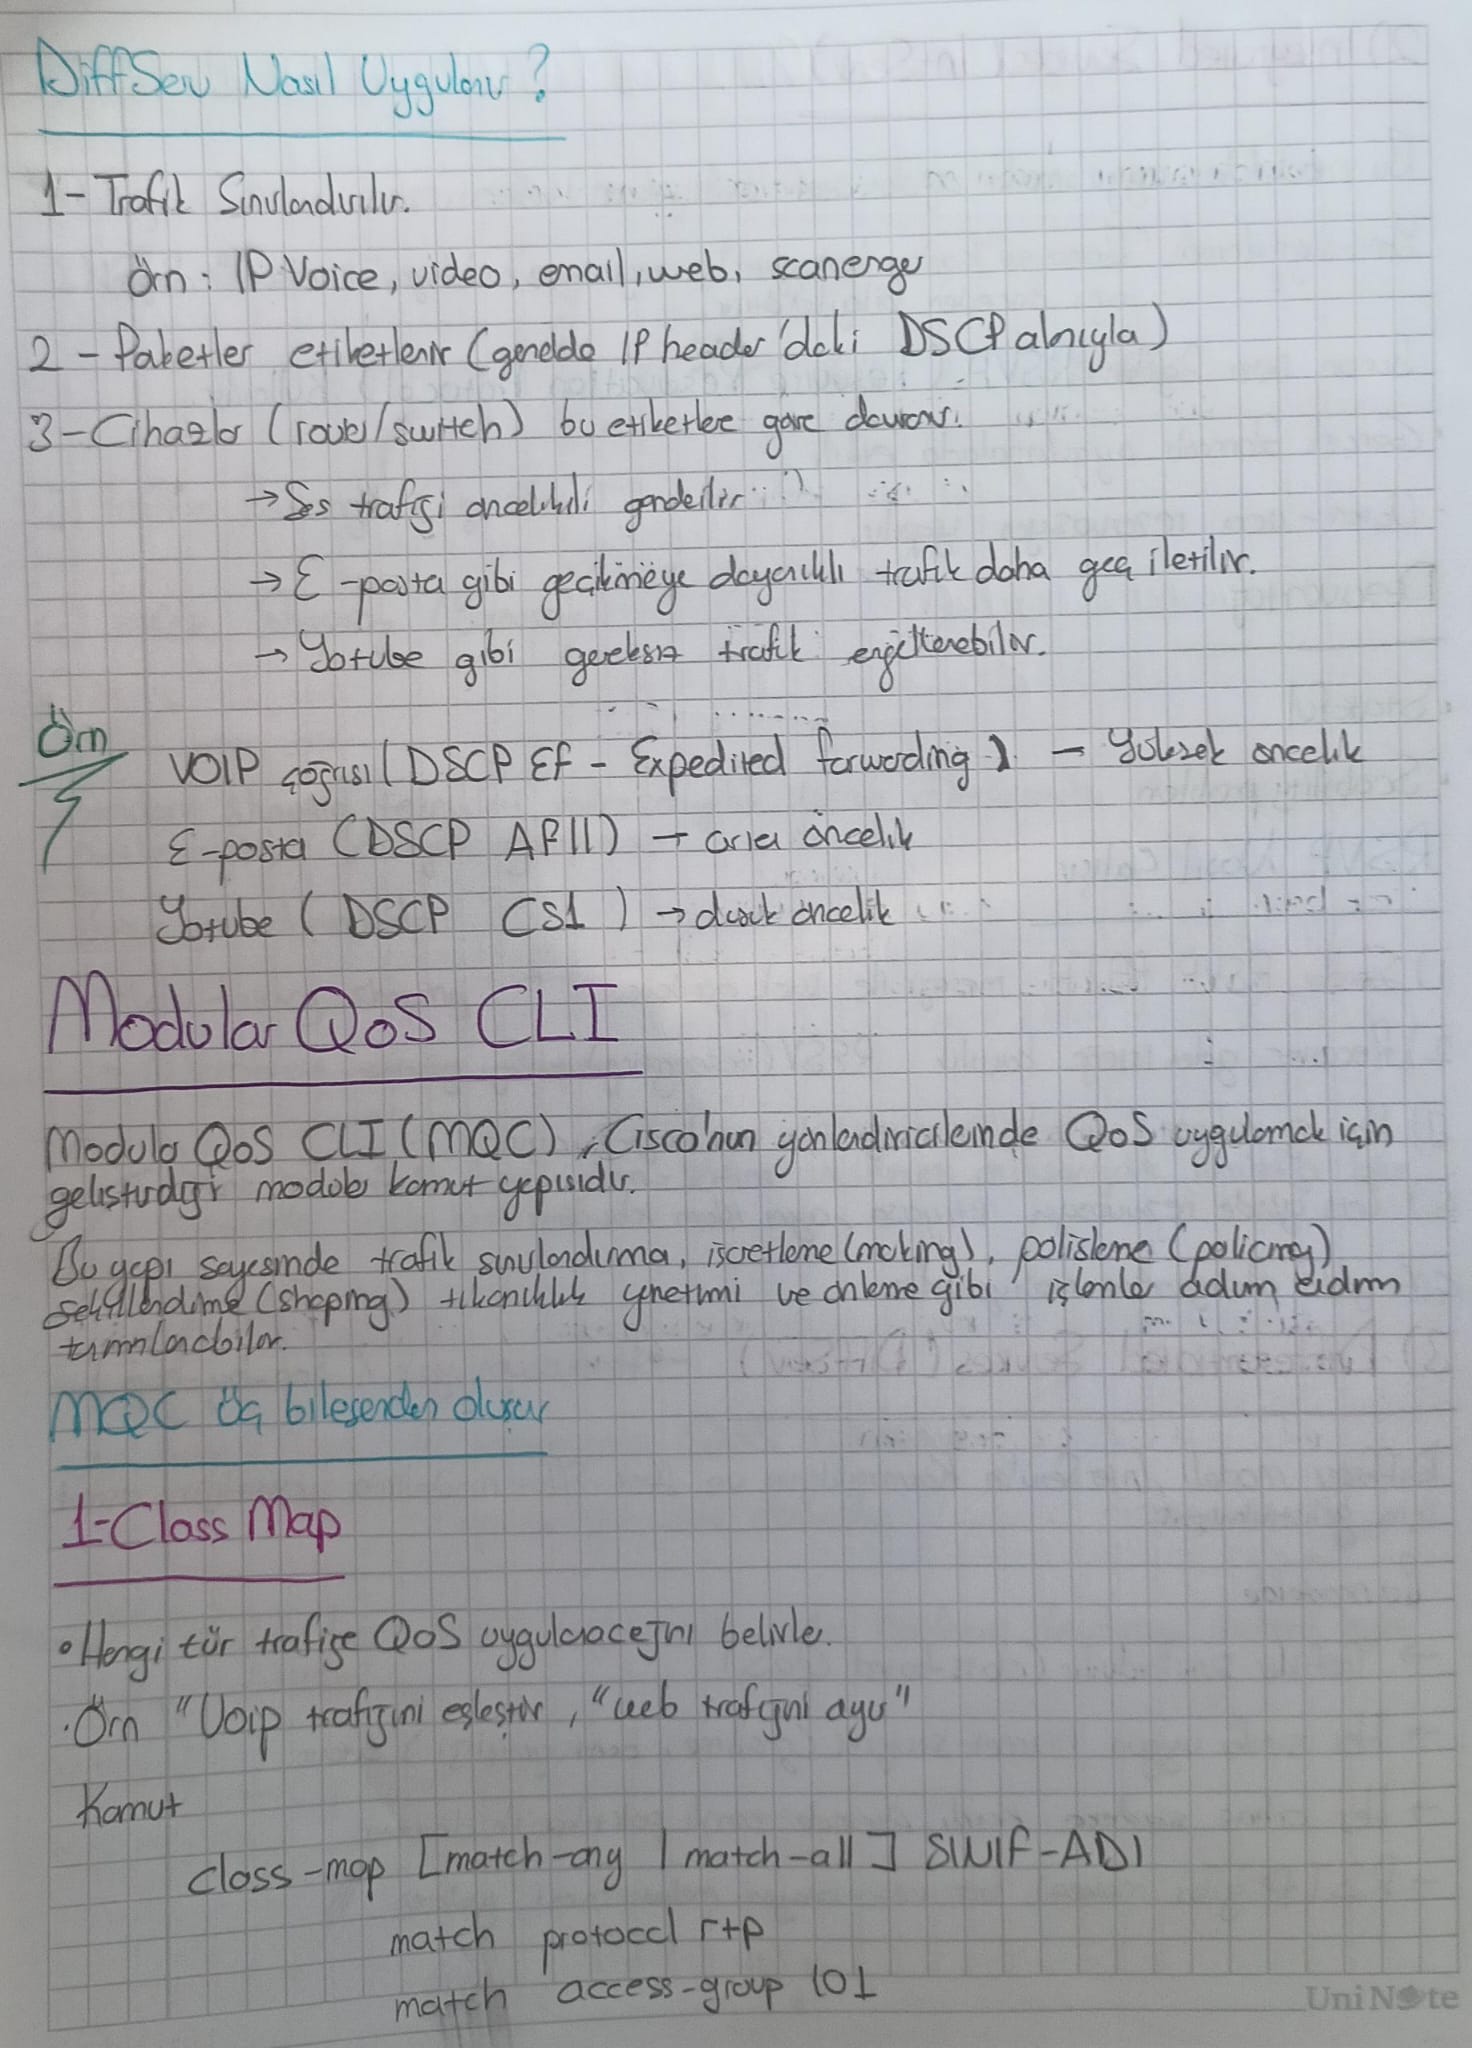 DiffServ Nasıl Uygulanır?
1- Trafik Sınıflandırılır.
Örn: IP Voice, video, email, web,
2- Paketler etiketlenir (genelde IP header'daki DSCP alanıyla)
3- Cihazlar (router/switch) bu etiketlere göre davranır.
→ Ses trafiği öncelikli gönderilir
→ E-posta gibi gecikmeye dayanıklı trafik daha geç iletilir.
→ Yotube gibi gereksiz trafik engellenebilir.
Örn
VOIP çağrısı (DSCP EF - Expedited forwarding) - Yüksek öncelik
E-posta (DSCP AF11) → orta öncelik
Yotube (DSCP CS1) → düşük öncelik
Modular QoS CLI
Modular QoS CLI (MQC), Cisco'nun yönlendiricilerinde QoS uygulamak için
geliştirdiği modüler komut yapısıdır.
Bu yapı sayesinde trafik sınıflandırma, işaretleme (marking), polisleme (policing)
şekillendirme (shaping) tıkanıklık yönetimi ve önleme gibi işlemler adım adım
tanımlanabilir.
MQC üç bileşenden oluşur
1-Class Map
• Hangi tür trafiğe QoS uygulanacağını belirler.
. Örn "Voip trafiğini eşleştir, "web trafiğini ayır"
Komut
class-map [match-any | match-all] SINIF-ADI
match protocol rtp
match access-group 101
UniNote